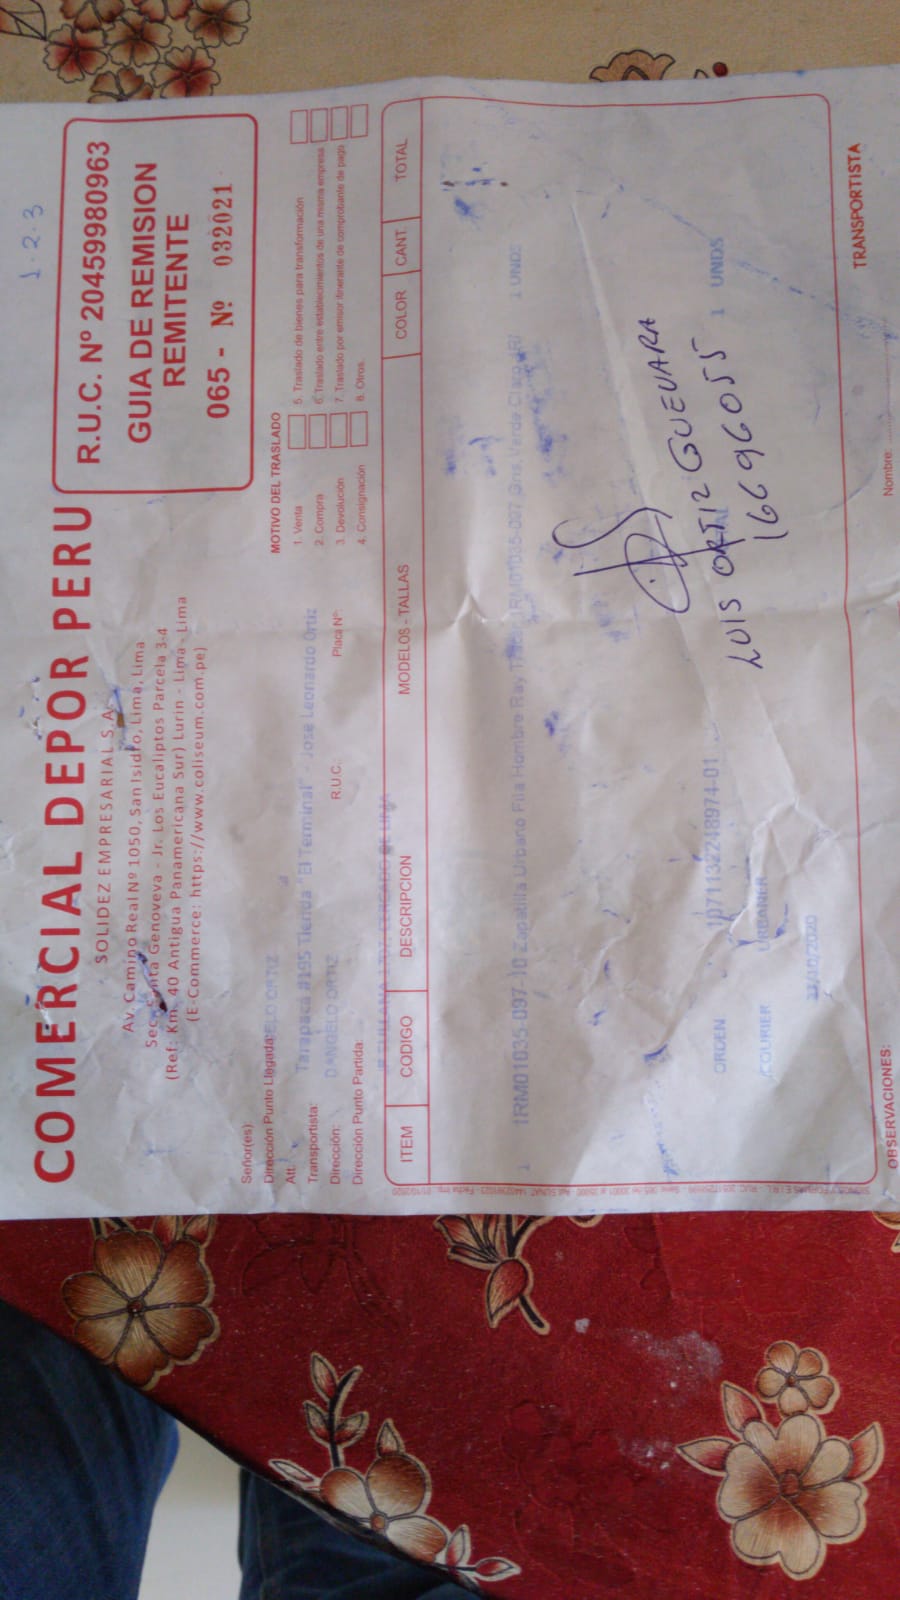 1-2-3
COMERCIAL DEPOR PERU
SOLIDEZ EMPRESARIAL S.A.
Av. Camino Real Nº 1050, San Isidro, Lima, Lima
Genoveva - Jr. Los Eucaliptos Parcela 3-4
(Ref: Km. 40 Antigua Panamericana Sur) Lurin - Lima - Lima
(E-Commerce: https://www.coliseum.com.pe)
R.U.C. Nº 20459980963
GUIA DE REMISION
REMITENTE
065 - Nº 032021
Señor(es):
Dirección Punto Llegada: ORTIZ
Att. Tarapacá #195 Tienda "El Terminal" - José Leonardo Ortiz
Transportista: D ANGELO ORTIZ
Dirección: R.U.C. Placa Nº:
Dirección Punto Partida:
MOTIVO DEL TRASLADO
1. Venta
2. Compra
3. Devolución
4. Consignación
5. Traslado de bienes para transformación
6. Traslado entre establecimientos de una misma empresa
7. Traslado por emisor itinerante de comprobante de pago
8. Otros
ITEM CODIGO DESCRIPCION MODELOS - TALLAS COLOR CANT. TOTAL
1 1RM01035-097-10 Zapatilla Urbano Fila Hombre Ray Tracer 1RM01035-097 Gris, Verde Claro 1 UNDS
LUIS ORTIZ GUEVARA
16696055
1 UNDS
ORDEN 1071132248974-01
COURIER URBANER
/10/2020
OBSERVACIONES:
TRANSPORTISTA
Nombre: